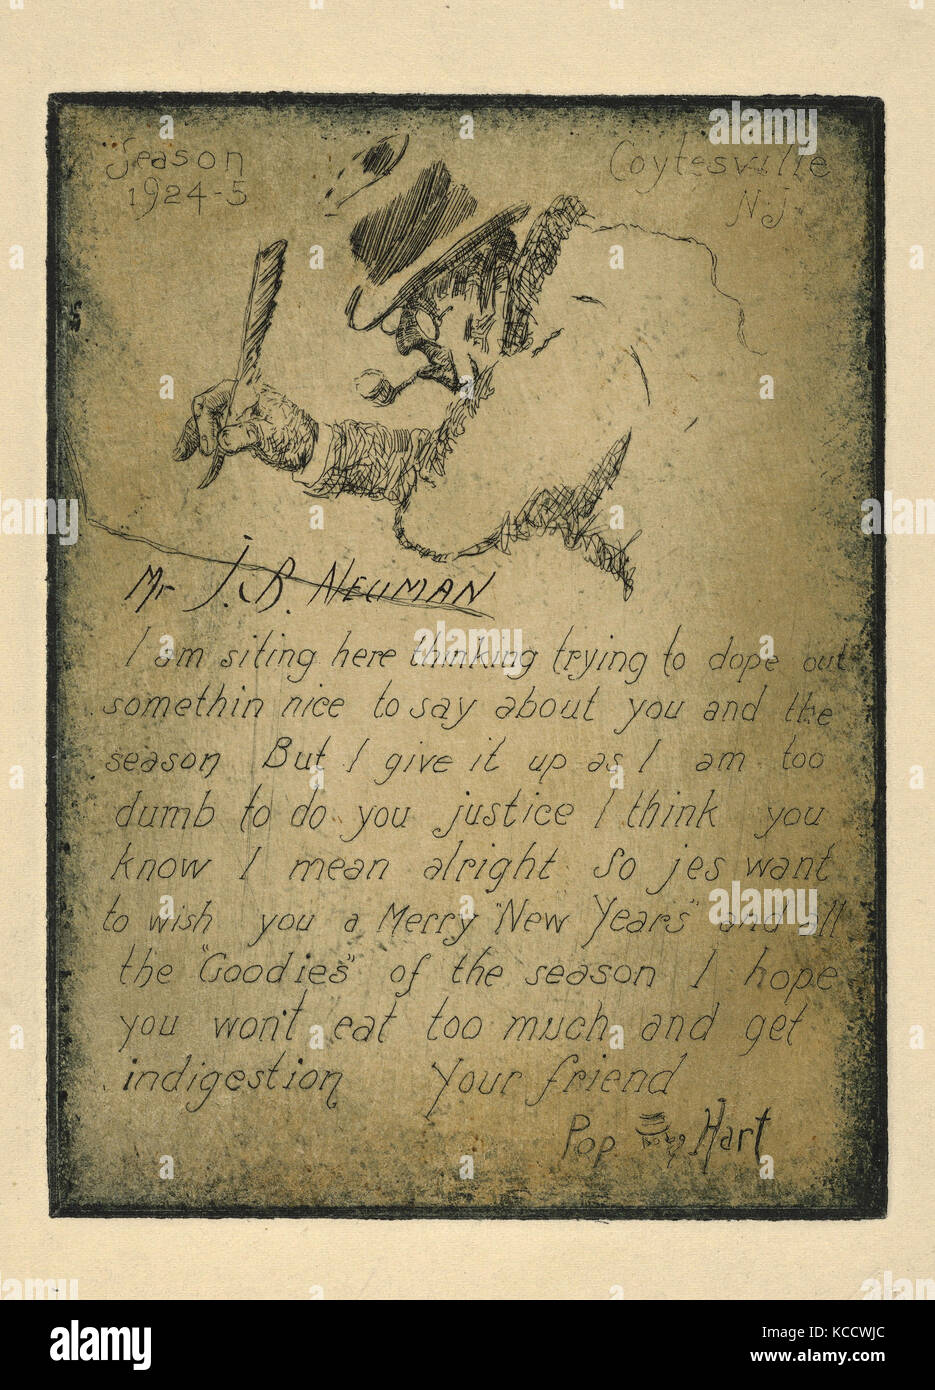 Season
1924-5
Coytesville
N.J
Mr J. B. NEUMAN
I am siting here thinking trying to dope out
somethin nice to say about you and the
season But I give it up as I am too
dumb to do you justice I think you
know I mean alright So jes want
to wish you a Merry "New Years" and all
the "Goodies" of the season I hope
you won't eat too much and get
indigestion Your friend
Pop Hart
alamy
a
alamy stock photo
Image ID: KCCWJC
www.alamy.com